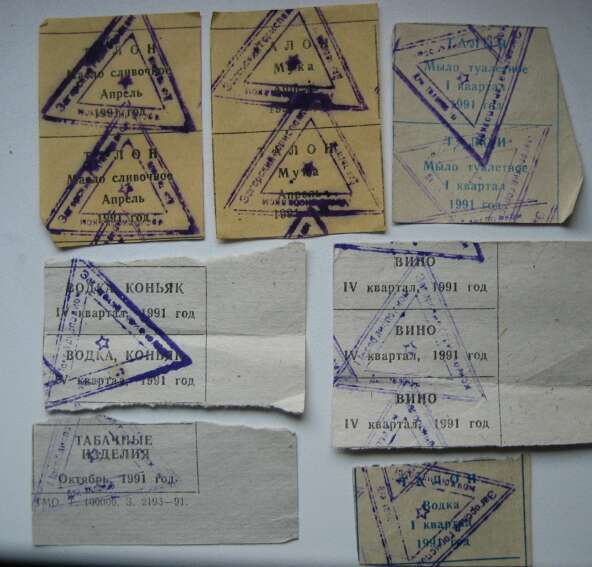 ТАЛОН
Масло сливочное
Апрель
1991 год
ТАЛОН
Масло сливочное
Апрель
1991 год
ТАЛОН
Мука
Апрель
1991
ТАЛОН
Мука
Апрель
1991
ТАЛОН
Мыло туалетное
I квартал
1991 год
ТАЛОН
Мыло туалетное
I квартал
1991 год.
ВОДКА, КОНЬЯК
IV квартал, 1991 год
ВОДКА, КОНЬЯК
IV квартал, 1991 год
ВИНО
IV квартал, 1991 год
ВИНО
IV квартал, 1991 год
ВИНО
IV квартал, 1991 год
ТАБАЧНЫЕ
ИЗДЕЛИЯ
Октябрь, 1991 год.
Т. 100000. З. 2193—91.
ТАЛОН
Водка
I квартал
1991 год